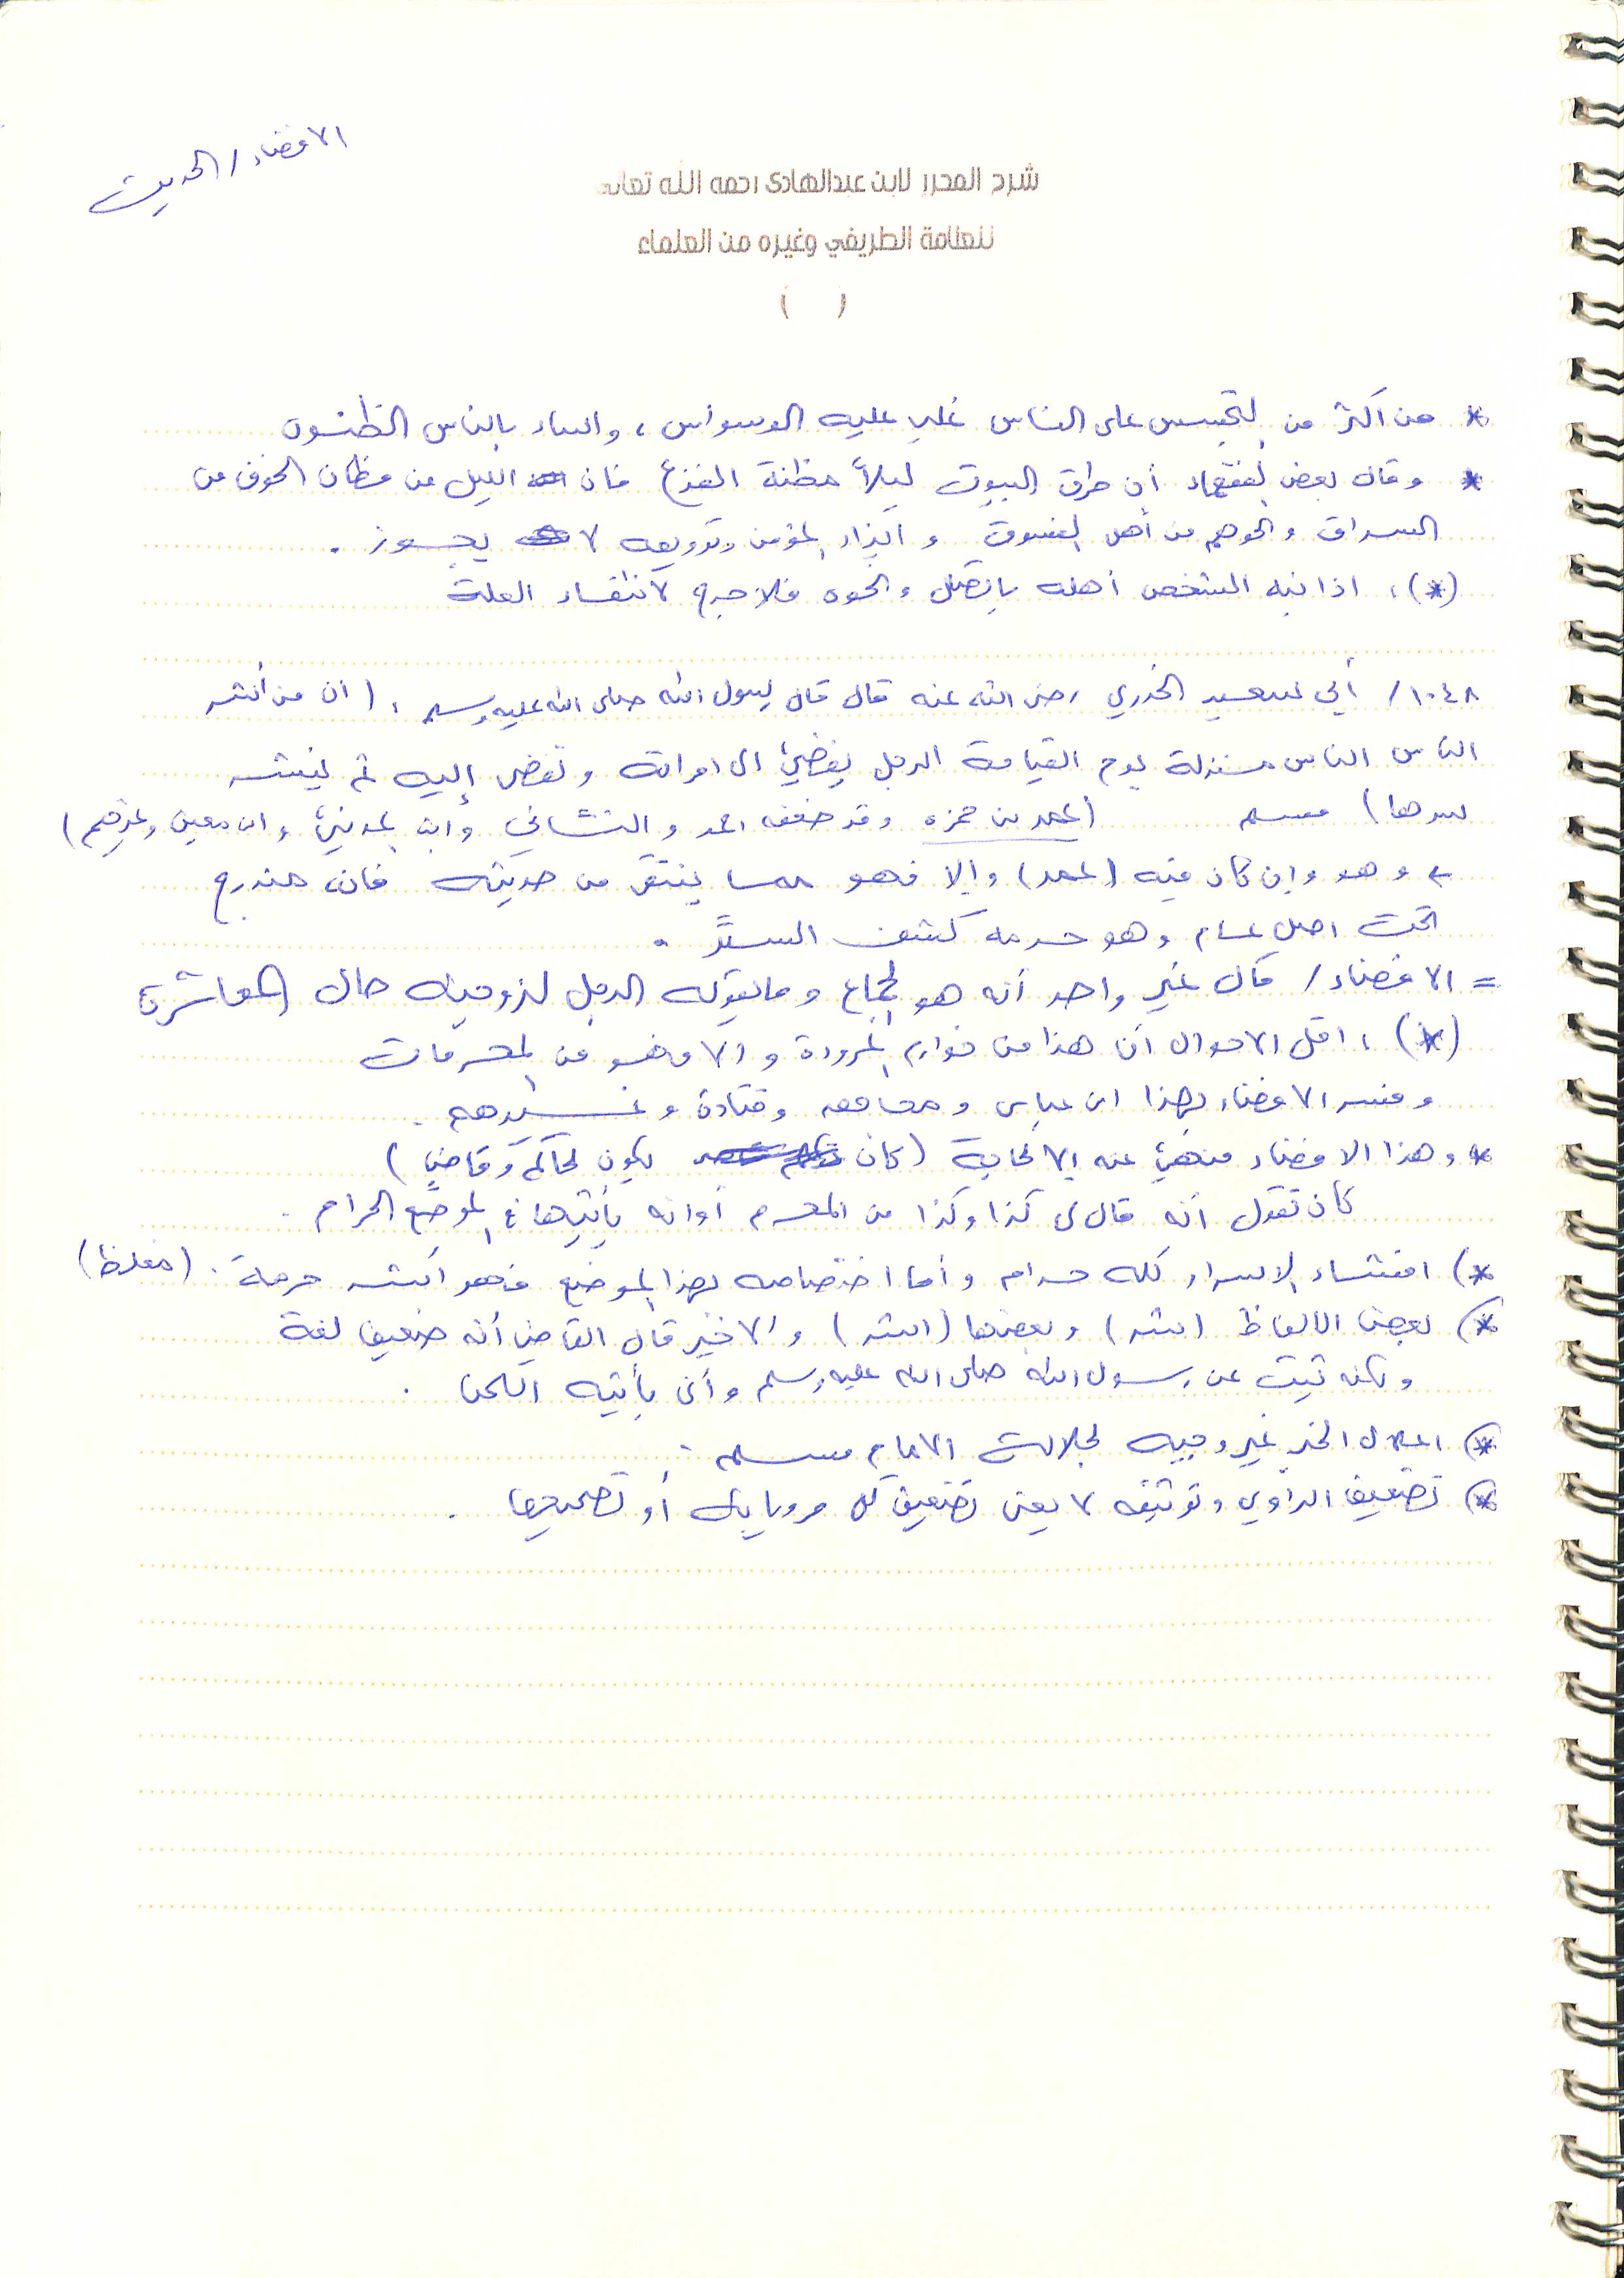 الافضاء / الحديث
شرح المحرر لابن عبدالهادي رحمه الله تعالى
للعلامة الطريفي وغيره من العلماء
( )
* من أكثر من التجسس على الناس غلب عليه الوسواس ، واساء بالناس الظنون
* وقال بعض الفقهاء أن طرق البيوت ليلاً مظنة الفزع فان الليل من مظان الخوف من
السراق و نحوهم من أهل الفسوق و ايذاء المؤمن وترويعه لا يجوز .
(*) ، اذا نبه الشخص أهله باتصال ونحوه فلا حرج لانتفاء العلة
١٠٤٨ / أبي سعيد الخدري رضي الله عنه قال قال رسول الله صلى الله عليه وسلم : ( ان من أشر
الناس الناس منزلة يوم القيامة الرجل يفضي الى امراته وتفضي إليه ثم ينشر
سرها ) مسلم ( عمر بن حمزه وقد ضعفه احمد والنسائي وابن المديني وابن معين وغيرهم )
وهو وإن كان فيه ( عمر ) وإلا فهو مما ينتقى من حديثه فانه مندرج
تحت اصل عام وهو حرمه كشف الستر .
= الافضاء / قال غير واحد أنه هو الجماع وما يقوله الرجل لزوجته حال المعاشرة
(*) ، اقل الاحوال أن هذا من خوارم المروءة والا فهو من المحرمات
وفسر الافضاء بهذا ابن عباس و مجاهد وقتادة وغيرهم .
* وهذا الافضاء منهي عنه إلا لحاجة ( كان يكون لحاكم وقاضي )
كان تقول أنه قال لي كذا وكذا من المحرم أو انه يأتيها في الموضع الحرام .
*) افشاء الاسرار كله حرام وأما اختصاصه بهذا الموضع فهو أشد حرمة . ( مغلظ )
*) بعض الالفاظ ( شر ) وبعضها ( اشر ) والاخير قال القاضي أنه ضعيف لغة
ولكنه ثبت عن رسول الله صلى الله عليه وسلم وأنى يأتيه اللحن .
*) اعلال الخبر غير وجيه لجلالة الامام مسلم .
*) تضعيف الراوي وتوثيقه لا يعني تضعيف كل مروياته أو تصحيحها .